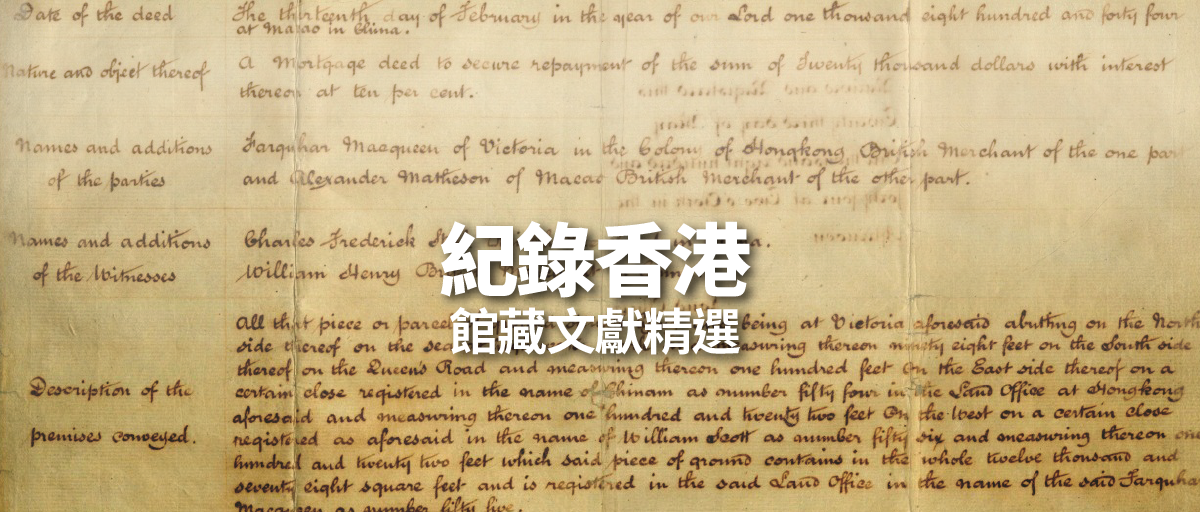 Date of the deed
The thirteenth day of February in the year of our Lord one thousand eight hundred and forty four
at Macao in China.
Nature and object thereof
A Mortgage deed to secure repayment of the sum of Twenty thousand dollars with interest
thereon at ten per cent.
Names and additions
of the parties
Farquhar Macqueen of Victoria in the Colony of Hongkong British Merchant of the one part
and Alexander Matheson of Macao British Merchant of the other part.
Names and additions
of the Witnesses
Charles Frederick
William Henry
紀錄香港
館藏文獻精選
Description of the
premises conveyed.
All that piece or parcel being at Victoria aforesaid abutting on the North
side thereof on the sea measuring thereon ninety eight feet on the South side
thereof on the Queen's Road and measuring thereon one hundred feet On the East side thereof on a
certain close registered in the name of Chinam as number fifty four in the Land Office at Hongkong
aforesaid and measuring thereon one hundred and twenty two feet On the West on a certain close
registered as aforesaid in the name of William Scott as number fifty six and measuring thereon one
hundred and twenty two feet which said piece of ground contains in the whole twelve thousand and
seventy eight square feet and is registered in the said Land Office in the name of the said Farquhar
Macqueen as number fifty five.